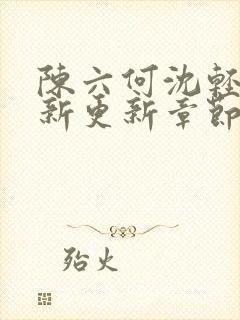 陳六何沈輕
新更新章節
殆火